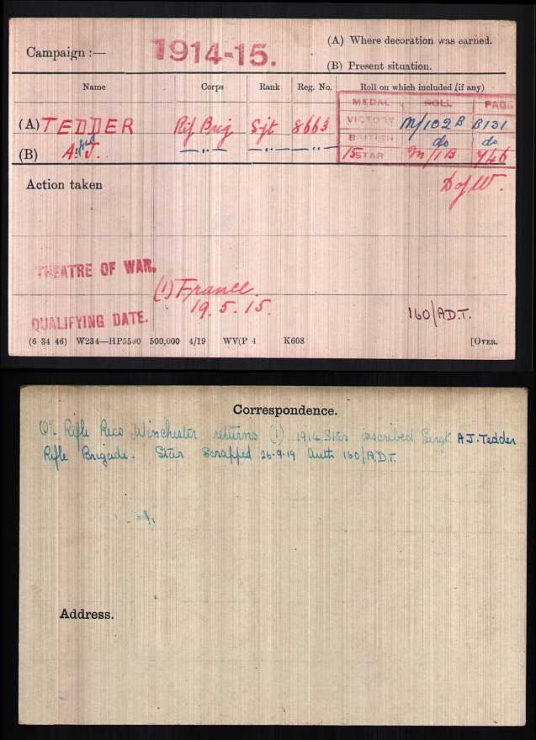 Campaign :— 1914-15. (A) Where decoration was earned.
(B) Present situation.
Name Corps Rank Reg. No. Roll on which included (if any)
MEDAL ROLL PAGE
(A) TEDDER Rif Brig Sjt 8663 VICTORY M/102B B131
(B) A.J. —〃— —〃— BRITISH do do
15 STAR M/1B 746
Action taken D of W.
THEATRE OF WAR. (1) France
QUALIFYING DATE. 19.5.15.
160/A.D.T.
(6 34 46) W234—HP5590 500,000 4/19 K608 [OVER.
Correspondence.
Rifle Recs Winchester returns (1) 1914 Star inscribed Sergt A J. Tedder
Rifle Brigade. Star Scrapped 26.9.19 Auth 160/A.D.T.
Address.